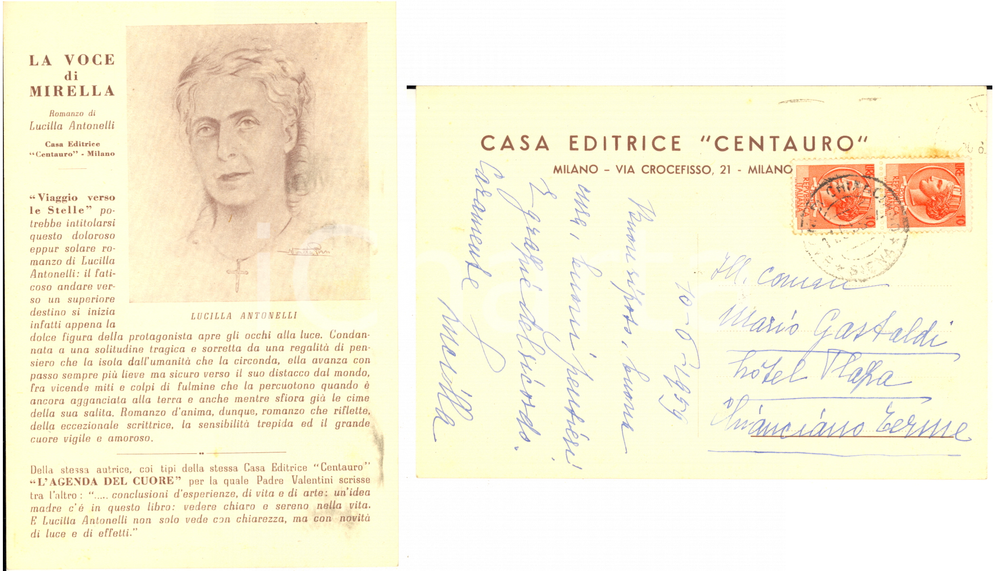 LA VOCE
di
MIRELLA
Romanzo di
Lucilla Antonelli
Casa Editrice
"Centauro" - Milano
"Viaggio verso
le Stelle" po-
trebbe intitolarsi
questo doloroso
eppur solare ro-
manzo di Lucilla
Antonelli: il fati-
coso andare ver-
so un superiore
destino si inizia
infatti appena la
dolce figura della protagonista apre gli occhi alla luce. Condan-
nata a una solitudine tragica e sorretta da una regalità di pen-
siero che la isola dall'umanità che la circonda, ella avanza con
passo sempre più lieve ma sicuro verso il suo distacco dal mondo,
fra vicende miti e colpi di fulmine che la percuotono quando è
ancora agganciata alla terra e anche mentre sfiora già le cime
della sua salita. Romanzo d'anima, dunque, romanzo che riflette,
della eccezionale scrittrice, la sensibilità trepida ed il grande
cuore vigile e amoroso.
LUCILLA ANTONELLI
Della stessa autrice, coi tipi della stessa Casa Editrice "Centauro"
"L'AGENDA DEL CUORE" per la quale Padre Valentini scrisse
tra l'altro: "..... conclusioni d'esperienze, di vita e di arte: un'idea
madre c'è in questo libro: vedere chiaro e sereno nella vita.
E Lucilla Antonelli non solo vede con chiarezza, ma con novità
di luce e di effetti."
CASA EDITRICE "CENTAURO"
MILANO - VIA CROCEFISSO, 21 - MILANO
10-6-1959
Buon riposo, buona
cura, buoni pensieri
E grazie del ricordo.
Caramente
Ill. Comm
Mario Gastaldi
Hôtel Plaza
Chianciano Terme